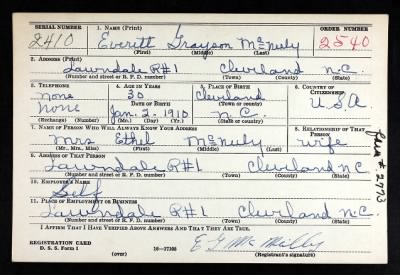 SERIAL NUMBER 1. NAME (Print) ORDER NUMBER
2410 Everitt Grayson McNeely 2540
(First) (Middle) (Last)
2. ADDRESS (Print)
Lawndale R#1 Cleveland N.C.
(Number and street or R. F. D. number) (Town) (County) (State)
3. TELEPHONE 4. AGE IN YEARS 5. PLACE OF BIRTH 6. COUNTRY OF CITIZENSHIP
None 30 Cleveland
DATE OF BIRTH (Town or county)
None Jan. 2. 1910 N.C. U.S.A
(Exchange) (Number) (Mo.) (Day) (Yr.) (State or country)
7. NAME OF PERSON WHO WILL ALWAYS KNOW YOUR ADDRESS 8. RELATIONSHIP OF THAT PERSON
Mrs Ethel McNeely wife
(Mr., Mrs., Miss) (First) (Middle) (Last)
9. ADDRESS OF THAT PERSON
Lawndale R#1 Cleveland N.C
(Number and street or R. F. D. number) (Town) (County) (State)
10. EMPLOYER'S NAME
Self
11. PLACE OF EMPLOYMENT OR BUSINESS
Lawndale R#1 Cleveland N.C.
(Number and street or R. F. D. number) (Town) (County) (State)
I AFFIRM THAT I HAVE VERIFIED ABOVE ANSWERS AND THAT THEY ARE TRUE.
REGISTRATION CARD
D. S. S. Form 1 16-17105 (over) (Registrant's signature)
# 2773